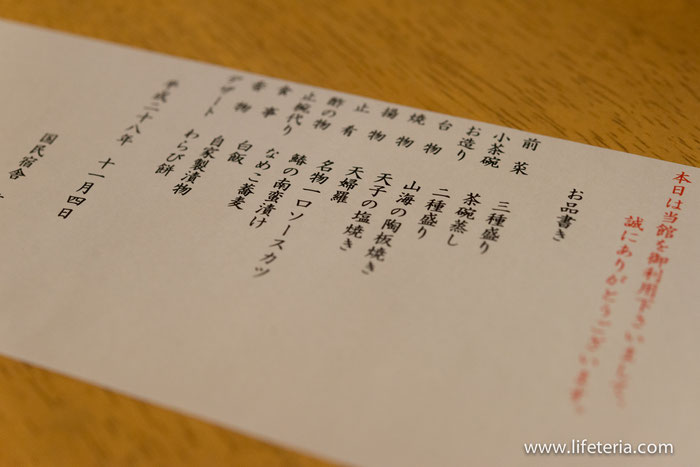 本日は当館を御利用下さいまして、
誠にありがとうございます。
お品書き
前菜 三種盛り
小茶碗 茶碗蒸し
お造り 二種盛り
台物 山海の陶板焼き
焼物 天子の塩焼き
揚物 天婦羅
止肴 名物一口ソースカツ
酢の物 鯵の南蛮漬け
止椀代り なめこ蕎麦
食事 白飯
香物 自家製漬物
デザート わらび餅
平成二十八年 十一月四日
国民宿舎
www.lifeteria.com